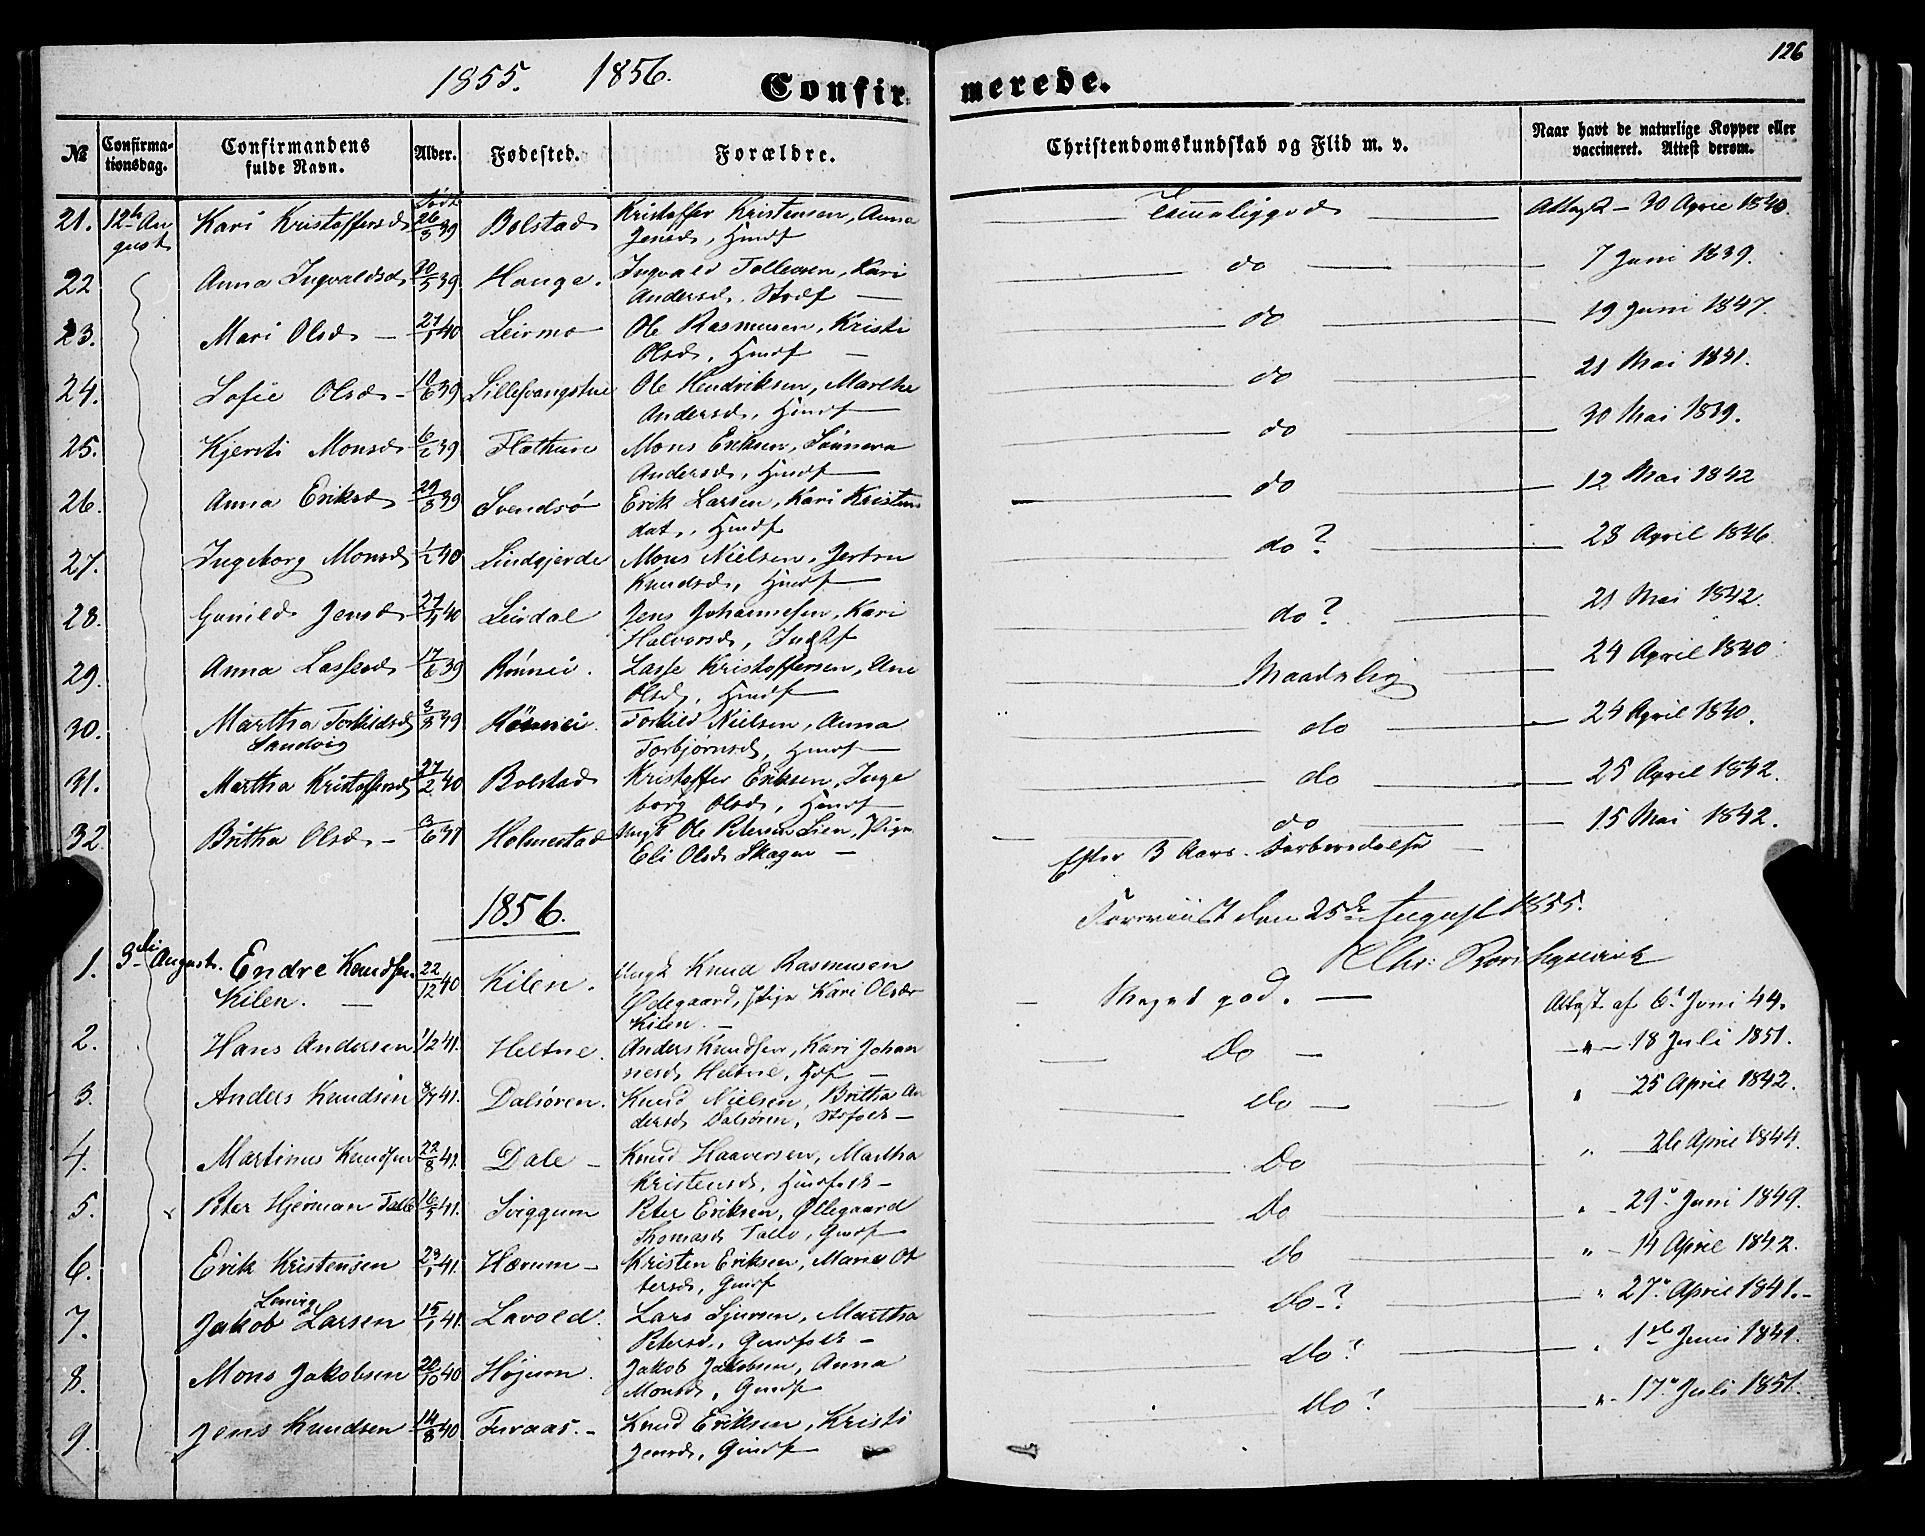 126
1855. 1856.
Confirmerede.
№ Confirmationsdag. Confirmandens fulde Navn. Alder. Fødested. Forældre. Christendomskundskab og Flid m. v. Naar havt de naturlige Kopper eller vaccineret. Attest derom.
21. 12te August Kari Kristoffersd. født 26/3 39 Bolstad Kristoffer Kristensen, Anna
Jensd., Hmdf Temmelig god Attest 30 April 1840.
22 Anna Ingvaldsd. /5 39 Hauge. Ingvald Tollevsen, Kari
Andersd. do 7 Juni 1839.
23. Mari Olsd. – 27/1 40 Leirmo Ole Rasmusen, Kristi
Olsd., Hmdf – do 19 Juni 1847.
24. Sofie Olsd. – 10/6 39 Lillesvangstue Ole Hendriksen, Martha
Andersd., Hmdf do 21 Mai 1841.
25. Kjersti Monsd. 39 Flathue Mons Eriksen, Sünneva
Andersd., Hmdf do 30 Mai 1839.
26. Anna Eriksd. 29/8 39 Svendsø Erik Larsen, Kari Kristens
dat., Hmdf do 12 Mai 1842
27. Ingeborg Monsd. 40 Lindgjerde Mons Nielsen, Jertru
Knudsd., Hmdf do? 28 April 1846.
28. Gunild Jensd. 27/ 40 Leirdal Jens Johannesen, Kari
Halvorsd., do? 21 Mai 1842.
29. Anna Lassesd. 17/6 39 Rönnei. Lasse Kristoffersen, Ane
Olsd., Hmdf Maadelig 24 April 1840
30. Martha Torkildsd. Sandvig 3/8 39 Rönnei. Torkild Nielsen, Anna
Torbjørnsd., Hmdf do 24 April 1840.
31. Martha Kristoffersd. 27/2 40 Bolstad Kristoffer Eriksen, Inge
borg Olsd., Hmdf do 25 April 1842.
32. Britha Olsd. – /6 37 Holmestad Ungk Ole Petersen Lien, Pige
Eli Olsd. Skagen – do 15 Mai 1842.
Efter 3 Aars Forberedelse
1856.
den 25de August 1855.
1. 3die August. Endre Knudsen
Kilen. – 22/12 40 Kilen. Ungk Knud Rasmusen
Ødegaard, Pige Kari Olsdr
Kilen. – Meget god. – Attest af 6t Juni 44.
2. Hans Andersen 1/2 41. Heltne. Anders Knudsen, Kari Johan
nesd. Heltne, Hdf – Do – –"– 18 Juli 1851.
3. Anders Knudsen 41. Dalsøren. Knud Nielsen, Britha An
dersd. Dalsøren, – do – " – 25 April 1842.
4. Martinus Knudsen 22/8 41. Dale – Knud Haaversen, Martha
Kristensd., Hmdfolk – Do " – 26 April 1844.
5. Peter Hjerman 16/5 41. Sviggum Peter Eriksen, Øllegaard
Thomasd. , Gmdf Do " – 29 Juni 1849.
6. Erik Kristensen 23/1 41. Hærum – Kristen Eriksen, Marie Ot
tersd., Gmdf do " – 14 April 1842.
7. Jakob Larsen 15/1 41. Lavold. Lars Sjursen, Martha
Petersd., Gmdfolk – do-? " 27 April 1841. –
8. Mons Jakobsen 20/10 40 Højum. Jakob Jakobsen, Anna
Monsd., Gmdf do? " 1ste Juni 1841.
9. Jens Knudsen 14/8 40 Furaas. – Knud Eriksen, Kristi
Jensd., Gmdf do? " – 17 Juli 1851.